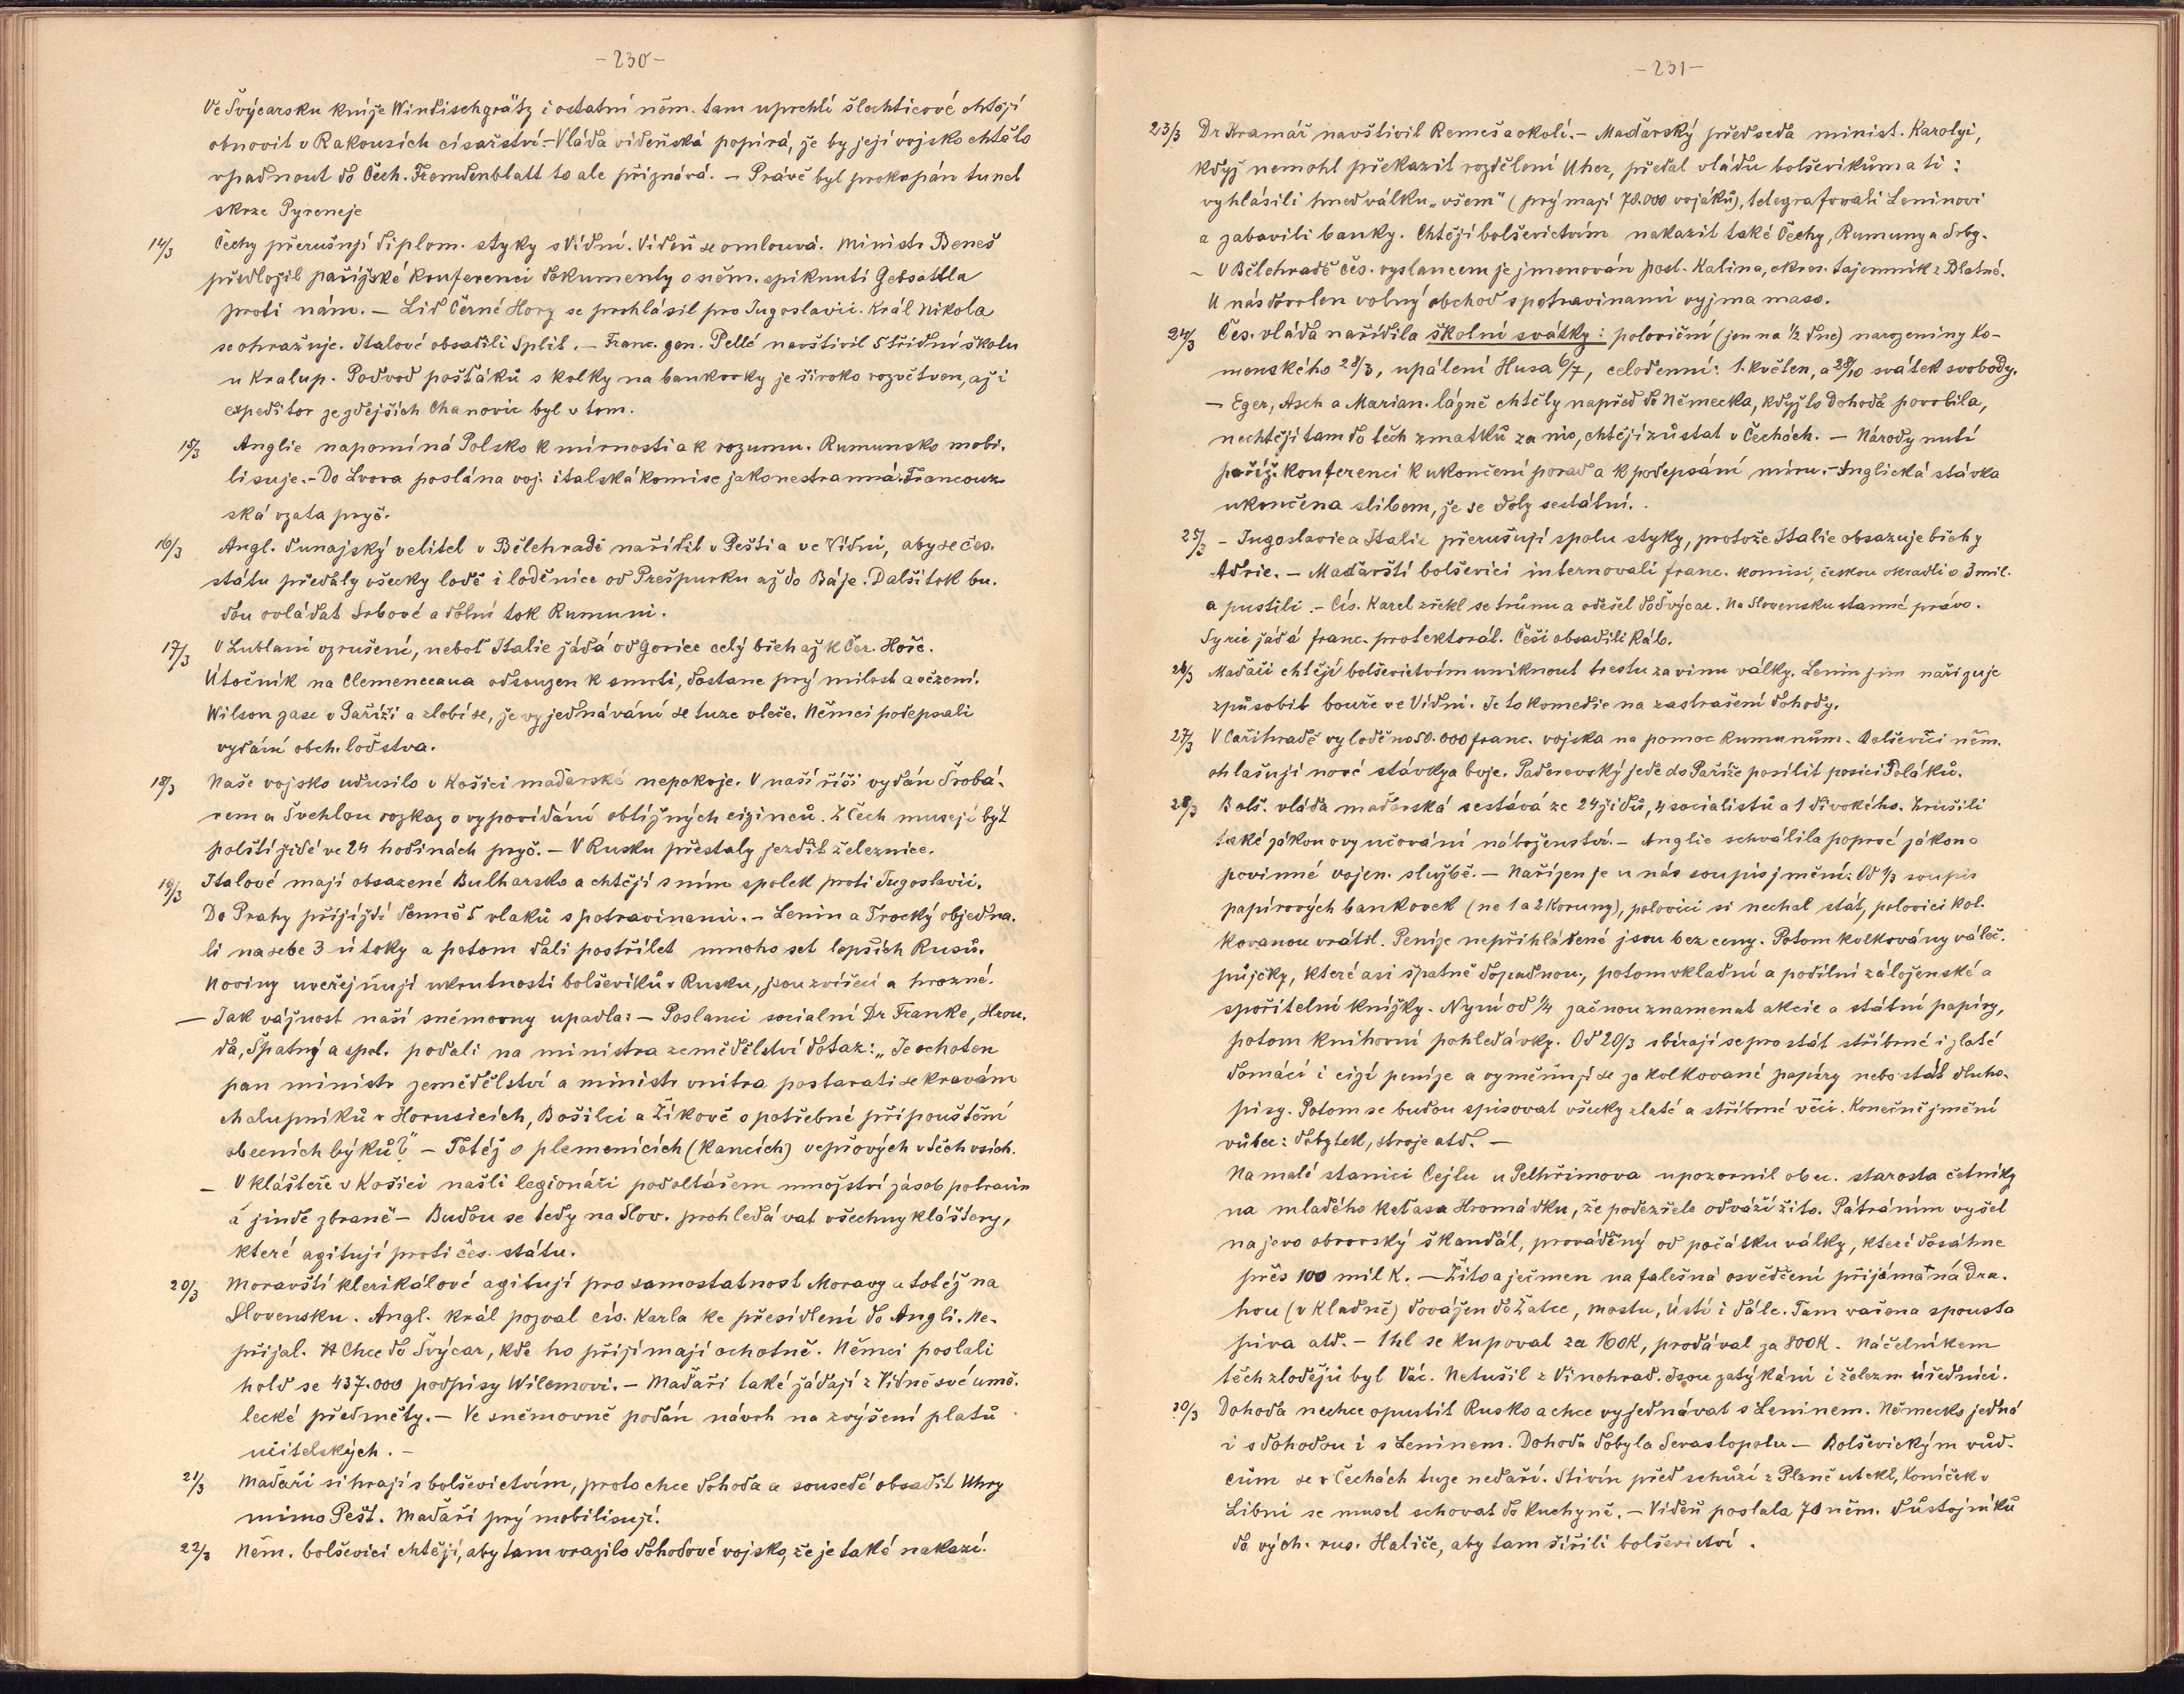 - 230 -
Ve Švýcarsku kníže Windischgrätz i ostatní něm. tam uprchlí šlechticové chtějí
obnovit v Rakousích císařství.- Vláda vídeňská popírá, že by její vojsko chtělo
vpadnout do Čech. Fremdenblatt to ale přiznává. - Právě byl prokopán tunel
skrze Pyreneje
14/3 Čechy přerušují diplom. styky s Vídní. Vídeň se omlouvá. Ministr Beneš
předložil pařížské konferenci dokumenty o něm. spiknutí Gebsattla
proti nám. - Lid Černé Hory se prohlásil pro Jugoslavii. Král Nikola
se ohražuje. Italové obsadili Split. - Franc. gen. Pellé navštívil 5třídní školu
u Kralup. Podvod pošťáků s kolky na bankovky je široko rozvětven, až i
expeditor ze zdejších Chanovic byl v tom.
15/3 Anglie napomíná Polsko k mírnosti a k rozumu. Rumunsko mobi-
lisuje.- Do Lvova poslána voj. italská komise jako nestranná. Francouz-
ská vzata pryč.
16/3 Angl. dunajský velitel v Bělehradě nařídil v Pešti a ve Vídni, aby se čes.
státu předaly všecky lodě i loděnice od Prešpurku až do Báje. Další tok bu-
dou ovládat Srbové a dolní tok Rumuni.
17/3 V Lublani vzrušení, neboť Italie žádá od Gorice celý břeh až k Čer. Hoře.
Útočník na Clemenceaua odsouzen k smrti, dostane prý milost a vězení.
Wilson zase v Paříži a zlobí se, že vyjednávání se tuze vleče. Němci podepsali
vydání obch. loďstva.
18/3 Naše vojsko udusilo v Košici maďarské nepokoje. V naší říši vydán Šrobá-
rem a Švehlou rozkaz o vypovídání obtížných cizinců. Z Čech musejí být
polští židé ve 24 hodinách pryč. - V Rusku přestaly jezdit železnice.
19/3 Italové mají obsazené Bulharsko a chtějí s ním spolek proti Jugoslavii.
Do Prahy přijíždí denně 5 vlaků s potravinami. - Lenin a Trocký objedna-
li na sebe 3 útoky a potom dali postřílet mnoho set lepších Rusů.
Noviny uveřejňují ukrutnosti bolševiků v Rusku, jsou zvířecí a hrozné.
- Jak vážnost naší sněmovny upadla: - Poslanci socialní Dr Franke, Hrou-
da, Špatný a spol. podali na ministra zemědělství dotaz: „Je ochoten
pan ministr zemědělství a ministr vnitra postarati se kravám
chalupníků v Horusicích, Bošilci a Žíkově o potřebné připouštění
obecních býků?" - Totéž o plemenících (kancích) vepřových v těch vsích.
- V klášteře v Košici našli legionáři pod oltářem množství zásob potravin
a jinde zbraně - Budou se tedy na Slov. prohledávat všechny kláštery,
které agitují proti čes. státu.
20/3 Moravští klerikálové agitují pro samostatnost Moravy a totéž na
Slovensku. Angl. král pozval cís. Karla ke přesídlení do Angli. Ne-
přijal. Chce do Švýcar, kde ho přijímají ochotně. Němci poslali
hold se 437.000 podpisy Wilemovi. - Maďaři také žádají z Vídně své umě-
lecké předměty. - Ve sněmovně podán návrh na zvýšení platů
učitelských. -
21/3 Maďaři si hrají s bolševictvím, proto chce dohoda a sousedé obsadit Uhry
mimo Pešť. Maďaři prý mobilisují.
22/3 Něm. bolševici chtějí, aby tam vrazilo dohodové vojsko, že je také nakazí.
- 231 -
23/3 Dr Kramář navštívil Remeš a okolí. - Maďarský předseda minist. Karolyi,
když nemohl překazit rozdělení Uher, předal vládu bolševikům a ti:
vyhlásili hned válku „všem" (prý mají 78.000 vojáků), telegrafovali Leninovi
a zabavili banky. Chtějí bolševictvím nakazit také Čechy, Rumuny a Srby.
- V Bělehradě čes. vyslancem je jmenován posl. Kalina, okres. tajemník z Blatné.
U nás dovolen volný obchod s potravinami vyjma maso.
24/3 Čes. vláda nařídila školní svátky: poloviční (jen na 1/2 dne) narozeniny Ko-
menského 28/3, upálení Husa 6/7, celodenní: 1. květen, a 28/10 svátek svobody.
- Eger, Asch a Marian. lázně chtěly napřed do Německa, když to Dohoda povolila,
nechtějí tam do těch zmatků za nic, chtějí zůstat v Čechách. - Národy nutí
paříž. konferenci k ukončení porad a k podepsání míru. - Anglická stávka
ukončena slibem, že se doly sestátní.
25/3 - Jugoslavie a Italie přerušují spolu styky, protože Italie obsazuje břehy
Adrie. - Maďarští bolševici internovali franc. komisi, českou okradli o 3 mil.
a pustili. - Cís. Karel zřekl se trůnu a odešel do Švýcar. Na Slovensku stanné právo.
Syrie žádá franc. protektorát. Češi obsadili Ráb.
26/3 Maďaři chtějí bolševictvím uniknout trestu za vinu války. Lenin jim nařizuje
způsobit bouře ve Vídni. Je to komedie na zastrašení dohody.
27/3 V Cařihradě vyloděno 50.000 franc. vojska na pomoc Rumunům. Bolševici něm.
ohlašují nové stávky a boje. Paderevský jede do Paříže posílit posici Poláků.
28/3 Bolš. vláda maďarská sestává ze 24 židů, 4 socialistů a 1 divokého. Zrušili
také zákon o vyučování náboženství. - Anglie schválila poprvé zákon o
povinné vojen. službě. - Nařízen je u nás soupis jmění: Od 1/3 soupis
papírových bankovek (ne 1 a 2 Koruny), polovici si nechal stát, polovici kol-
kovanou vrátil. Peníze nepřihlášené jsou bez ceny. Potom kolkovány váleč.
půjčky, které asi špatně dopadnou, potom vkladní a podílní záloženské a
spořitelní knížky. Nyní od 1/4 začnou znamenat akcie a státní papíry,
potom knihovní pohledávky. Od 20/3 sbírají se pro stát stříbrné i zlaté
domácí i cizí peníze a vyměňují se za kolkované papíry nebo stát. dluho-
pisy. Potom se budou spisovat všecky zlaté a stříbrné věci. Konečně jmění
vůbec: dobytek, stroje atd. -
Na malé stanici Cejlu u Pelhřimova upozornil obec. starosta četníky
na mladého keťasa Hromádku, že podezřele odváží žito. Pátráním vyšel
na jevo obrovský škandál, prováděný od počátku války, které dosáhne
přes 100 mil K. - Žito a ječmen na falešná osvědčení přijímá na Dra-
hou (v Kladně) dovážen do Žatce, Mostu, Ústí i dále. Tam vařena spousta
piva atd. - 1 hl se kupoval za 160K, prodával za 800K. Náčelníkem
těch zlodějů byl Vác. Netušil z Vinohrad. Jsou zatýkáni i železn. úředníci.
30/3 Dohoda nechce opustit Rusko a chce vyjednávat s Leninem. Německo jedná
i s dohodou i s Leninem. Dohoda dobyla Sevastopolu - Bolševickým vůd-
cům se v Čechách tuze nedaří. Stivín před schůzí z Plzně utekl, Koníček v
Libni se musel schovat do kuchyně. - Vídeň poslala 70 něm. důstojníků
do vých. rus. Haliče, aby tam šířili bolševictví.